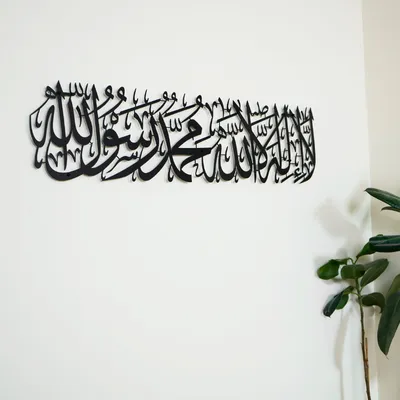 لَا إِلٰهَ إِلَّا اللّٰه مُحَمَّدٌ رَسُولُ اللّٰه